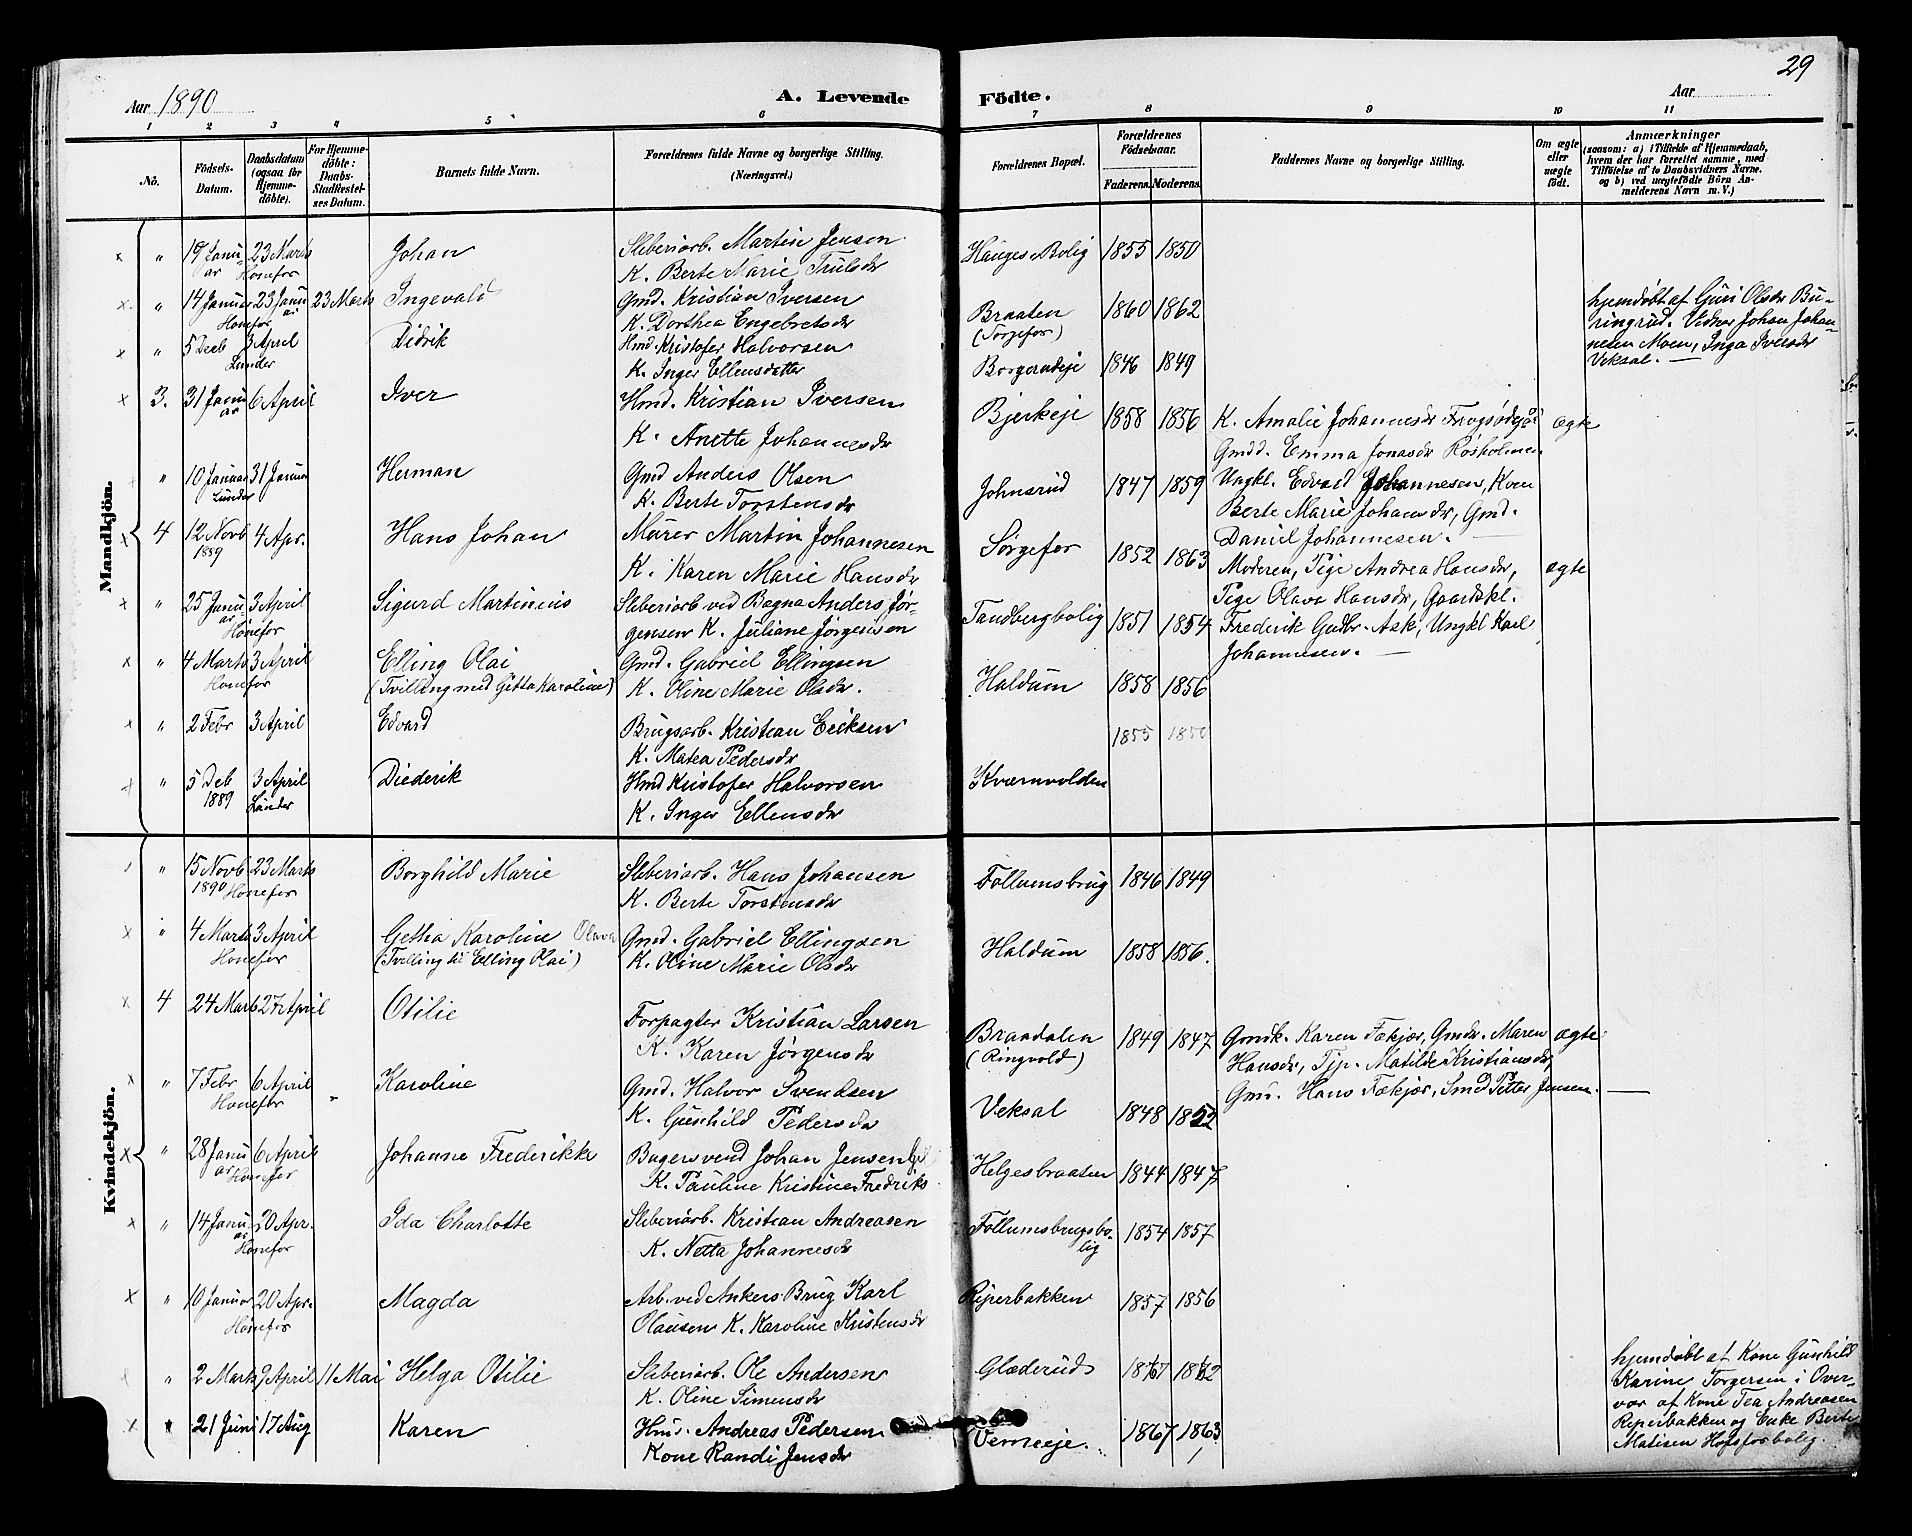 29
Aar 1890
A. Levende
Födte.
Aar
1 2 3 4 5 6 7 8 9 10 11
No.
Födsels-Datum.
Daabsdatum (ogsaa for Hjemmedöbte).
For Hjemmedöbte: Daabs-Stadfæstelses Datum.
Barnets fulde Navn.
Forældrenes fulde Navne og borgerlige Stilling. (Næringsvei.)
Forældrenes Bopæl.
Forældrenes Födselsaar.
Faderens. Moderens.
Faddernes Navne og borgerlige Stilling.
Om ægte eller uægte födt.
Anmærkninger
(saasom: a) i Tilfælde af Hjemmedaab, hvem der har forrettet samme, med Tilföielse af to Daabsvidners Navne. og b) ved uægtefödte Börn Anmelderens Navn m. V.)
Mandkjön.
" 19 Januar 23 Marts Hönefos Johan Sliberiarb. Martin Jensen Hauges Bolig 1855 1850
K. Berte Marie Trulsdr
" 14 Januar 23 Januar 23 Marts Ingevald Gmd. Kristian Iversen Braaten 1860 1862 hjemdøbt af Guri Olsdr Bu-
Hönefos K. Dorthea Engebretsdr (Sørgefos) ringrud. Vidner Johan Johan-
nesen Moen, Inga Iversdr
Veksal. —
" 5 Decb 3 April Lunder Didrik Hmd. Kristofer Halvorsen Borgerudeje 1846 1849
K. Inger Ellensdatter
3. 31 Januar 6 April Iver Hmd. Kristian Iversen Bjerkeje 1858 1856 K. Amalie Johannesdr ægte
K. Anette Johannesdr Gmdd. Emma Jonasdr Røsholmen
" 10 Januar 31 Januar Lunder Herman Gmd Anders Olsen Johnsrud 1847 1859 Ungkl. Edvard Johannesen, Kone
K. Berte Torstensdr Berte Marie Johansdr, Gmd.
Daniel Johannesen. —
4 12 Novb 1889 4 Apr. Hans Johan Murer Martin Johannesen Sørgefos 1852 1863 Moderen, Pige Andrea Hansdr, ægte
K. Karen Marie Hansdr Pige Olava Hansdr, Gaardskl.
" 25 Januar 3 April Hönefos Sigurd Martinius Sliberiarb ved Bagna Anders Jør- Tandbergbolig 1851 1854 Frederik Gudbr. Ask, Ungkl Karl
gensen K. Juliane Jørgensen Johannesen. —
" 4 Marts 3 April Elling Olai Gmd. Gabriel Ellingsen Haldum 1858 1856
Hönefos (Tvilling med Gitta Karoline) K. Oline Marie Olsdr.
" 2 Febr 3 April Edvard Brugsarb. Kristian Eriksen 1855 1850
K. Matea Pedersdr
" 5 Deb 1889 3 April Lunder Diederik Hmd Kristofer Halvorsen Kværnvolden
K. Inger Ellensdr
Kvindekjön.
" 15 Novb 1890 23 Marts Hönefos Borghild Marie Sliberiarb. Hans Johansen Follumsbrug 1846 1849
K. Berte Torstensdr
" 4 Marts 3 April Getha Karoline Olava Gmd. Gabriel Ellingsen Haldum 1858 1856.
Hönefos (Tvilling til Elling Olai) K. Oline Marie Olsdr
4 24 Marts 27 April Otilie Forpagter Kristian Larsen Braadalen 1849 1847 Gmdk. Karen Fækjær, Gmdr. Maren ægte
K. Karen Jørgensdr (Ringvold) Hansdr, Tjp. Matilde Kristiansdr,
Gmd. Hans Fækjær, Smed Petter Jensen. —
" 7 Febr 6 April Hönefos Karoline Gmd. Halvor Svendsen Veksal 1848 1852
K. Gunhild Pedersdr
" 28 Januar 6 April Hönefos Johanne Frederikke Bagersvend Johan Jensen Helgesbraaten 1844 1847
K. Pauline Kristine Fredriks
" 14 Januar 20 Apr. Hönefos Ida Charlotte Sliberiarb. Kristian Andreasen Follumsbrugsbo- 1854 1857
K. Netta Johannesdr lig
" 10 Januar 20 Apr. Hönefos Magda Arb. ved Ankers Brug Karl Riperbakken 1857 1856
Olausen K. Karoline Kristensdr
" 2 Marts 9 April 11 Mai Helga Otilie Sliberiarb. Ole Andersen Glæderud 1867 1862 hjemdøbt af Kone Gunhild
K. Oline Simensdr Karine Torgersen i Over-
vær af Kone Tea Andreasen
Riperbakken og Enke Berte
Matisen Hofsfosbolig.
" 21 Juni 17 Aug Karen Hmd. Andreas Pedersen Verneeje. 1867 1863
Kone Randi Jensdr